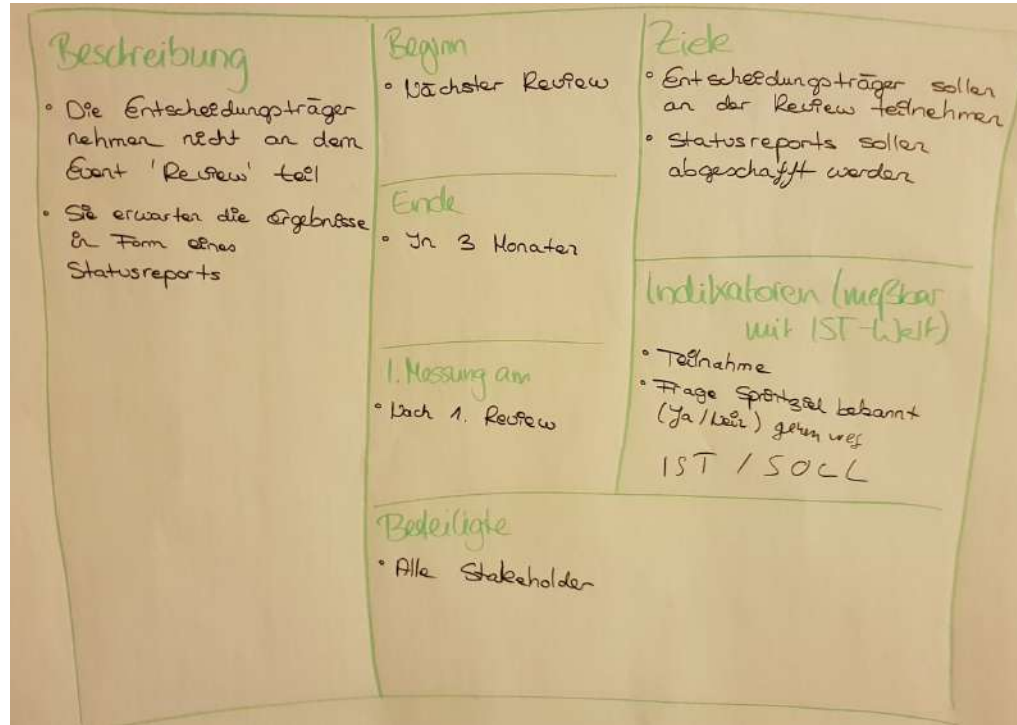 Beschreibung
• Die Entscheidungsträger
nehmen nicht an dem
Event 'Review' teil
• Sie erwarten die Ergebnisse
in Form eines
Statusreports
Beginn
• Nächster Review
Ende
• In 3 Monaten
1. Messung am
• Nach 1. Review
Ziele
• Entscheidungsträger sollen
an der Review teilnehmen
• Statusreports sollen
abgeschafft werden
Indikatoren (meßbar
mit IST-Welt)
• Teilnahme
• Frage Sprintziel bekannt
(Ja/Nein)
IST / SOLL
Beteiligte
• Alle Stakeholder